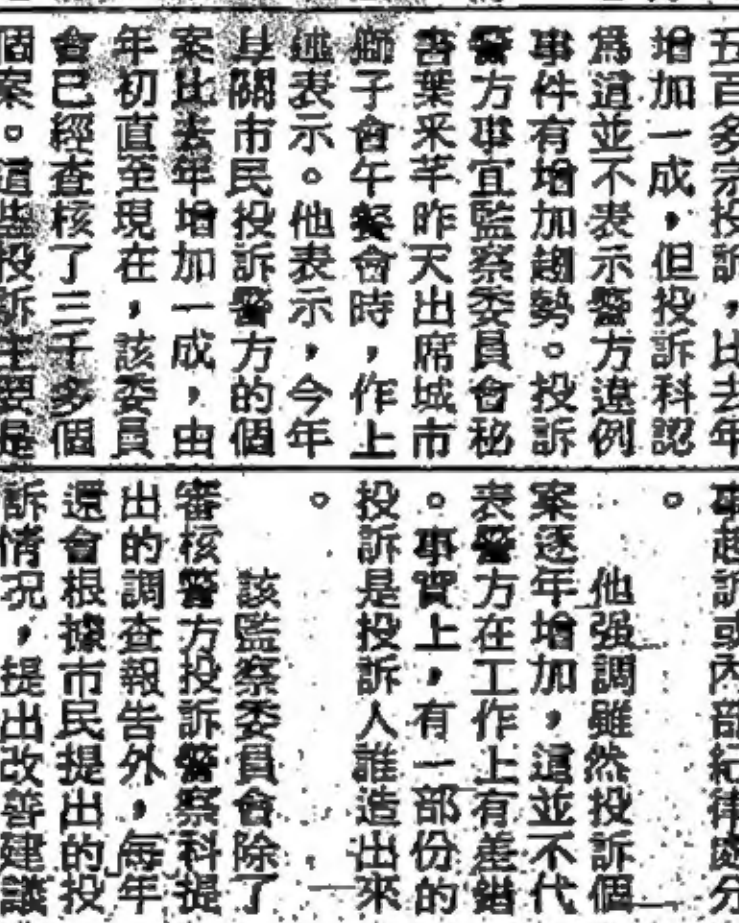 五百多宗投訴，比去年
增加一成，但投訴科認
爲這並不表示警方違例
事件有增加趨勢。投訴
警方事宜監察委員會秘
書葉采芊昨天出席城市
獅子會午餐會時，作上
述表示。他表示，今年
有關市民投訴警方的個
案比去年增加一成，由
年初直至現在，該委員
會已經查核了三千多個
個案。這些投訴主要是
事起訴或內部紀律處分
。
他强調雖然投訴個
案逐年增加，這並不代
表警方在工作上有差錯
。事實上，有一部份的
投訴是投訴人誰造出來
。
該監察委員會除了
審核警方投訴警察科提
出的調查報告外，每年
還會根據市民提出的投
訴情况，提出改善建議